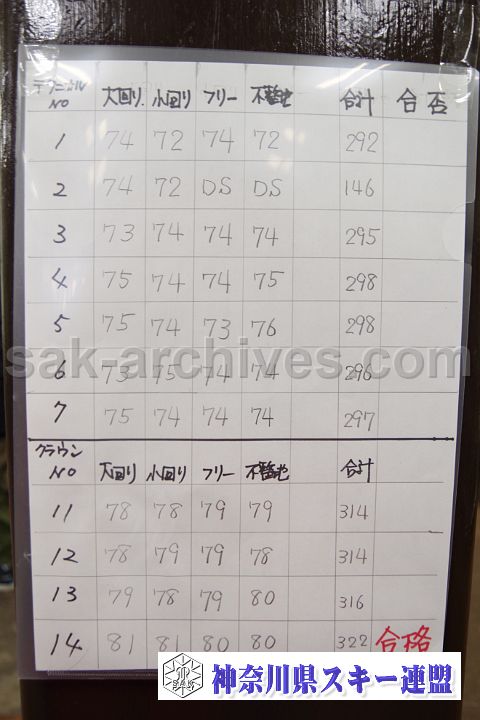 テクニカル NO 大回り 小回り フリー 不整地 合計 合否
1 74 72 74 72 292
2 74 72 DS DS 146
3 73 74 74 74 295
4 75 74 74 75 298
5 75 74 73 76 298
6 73 75 74 74 296
7 75 74 74 74 297
クラウン NO 大回り 小回り フリー 不整地 合計
11 78 78 79 79 314
12 78 79 79 78 314
13 79 78 79 80 316
14 81 81 80 80 322 合格
sak-archives.com
神奈川県スキー連盟